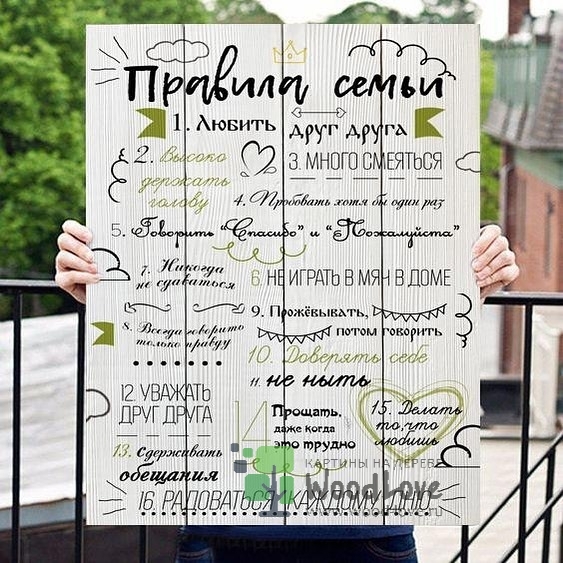 Правила семьи
1. Любить друг друга
2. Высоко
держать
голову
3. МНОГО СМЕЯТЬСЯ
4. Пробовать хотя бы один раз
5. Говорить "Спасибо" и "Пожалуйста"
6. НЕ ИГРАТЬ В МЯЧ В ДОМЕ
7. Никогда
не сдаваться
8. Всегда говорить
только правду
9. Прожёвывать,
потом говорить
10. Доверять себе
11. не ныть
12. УВАЖАТЬ
ДРУГ ДРУГА
13. Сдерживать
обещания
14 Прощать,
даже когда
это трудно
15. Делать
то, что
любишь
16. РАДОВАТЬСЯ КАЖДОМУ ДНЮ
КАРТИНЫ НА ДЕРЕВЕ
WoodLove